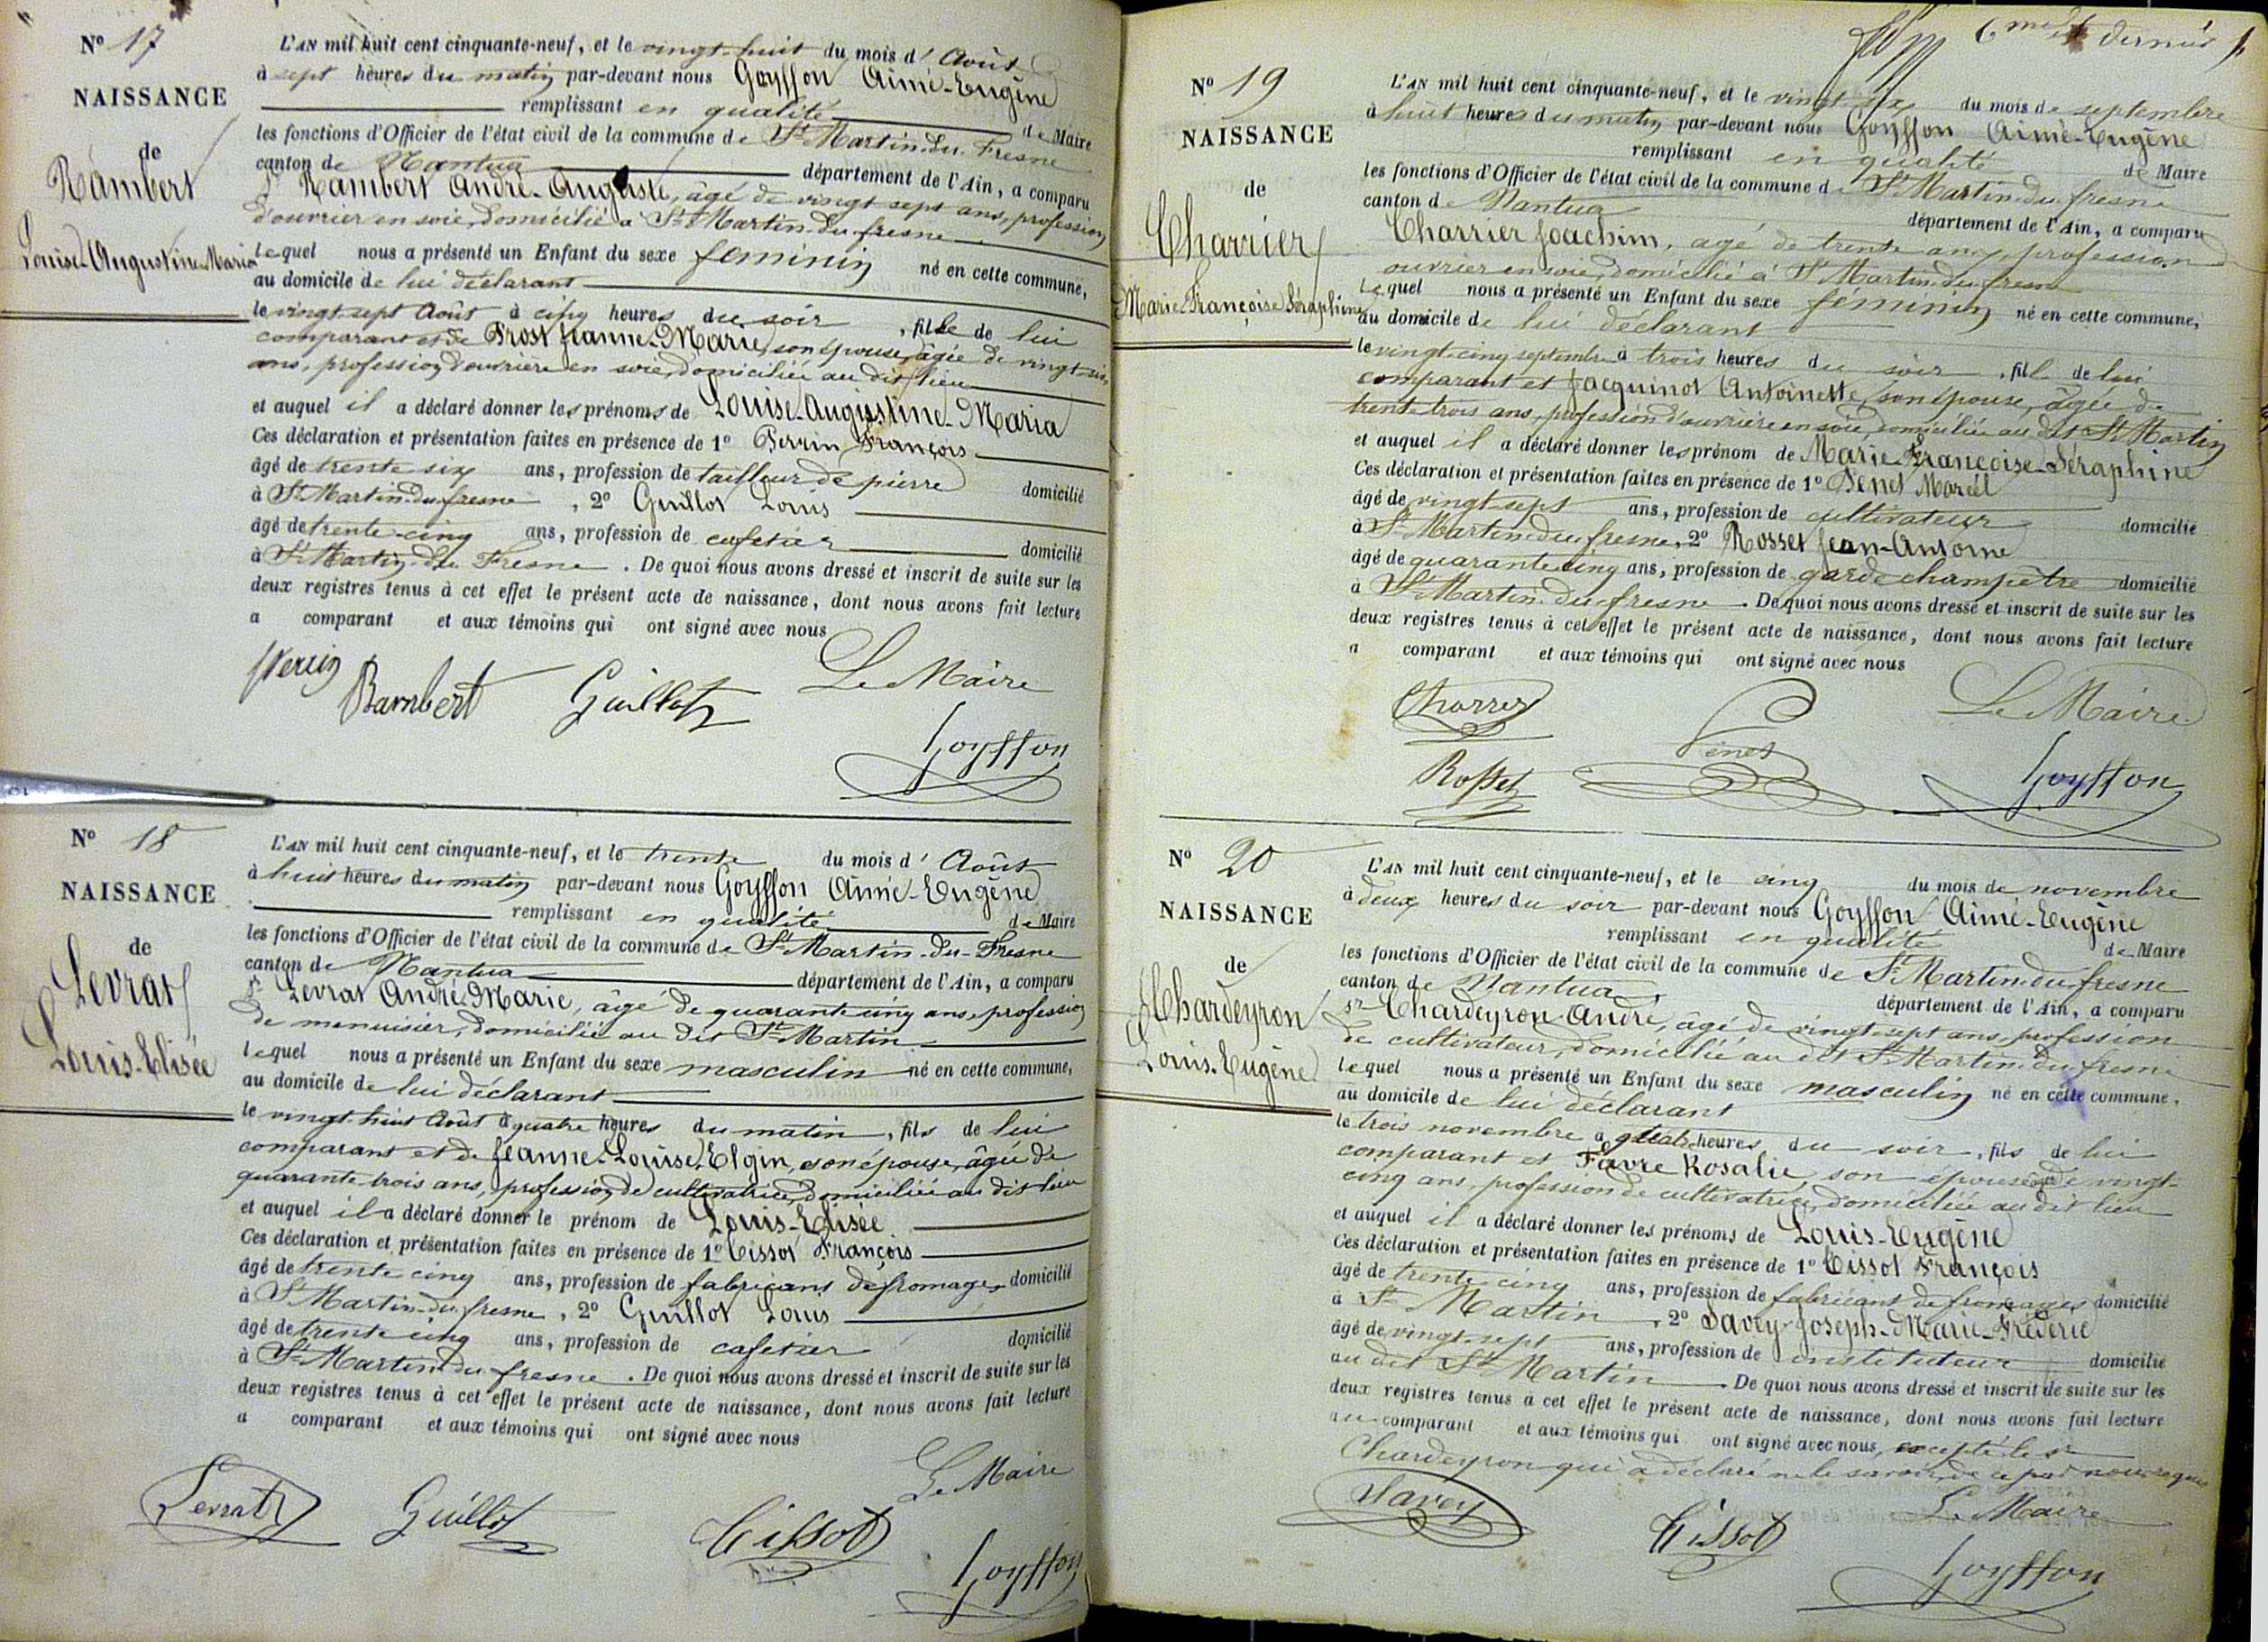 Nº 17
NAISSANCE
de
Rambert
Louise-Augustine-Maria
L'AN mil huit cent cinquante-neuf, et le vingt-huit du mois d' Août
à sept heures du matin par-devant nous Goyffon Aimé-Eugène
remplissant en qualité de Maire
les fonctions d'Officier de l'état civil de la commune de St Martin-du-Fresne
canton de Nantua département de l'Ain, a comparu
Sr Rambert André-Auguste, âgé de vingt sept ans, profession
d'ouvrier en soie, domicilié à St Martin-du-fresne
lequel nous a présenté un Enfant du sexe féminin né en cette commune,
au domicile de lui déclarant
le vingt-sept Août à cinq heures du soir, fille de lui
comparant et de Prost Jeanne-Marie, son épouse, âgée de vingt-six
ans, profession d'ouvrière en soie, domiciliée au dit lieu
et auquel il a déclaré donner les prénoms de Louise-Augustine-Maria
Ces déclaration et présentation faites en présence de 1º Perrin François
âgé de trente six ans, profession de tailleur de pierre domicilié
à St Martin-du-fresne, 2º Guillot Louis
âgé de trente-cinq ans, profession de cafetier domicilié
à St Martin-du-Fresne. De quoi nous avons dressé et inscrit de suite sur les
deux registres tenus à cet effet le présent acte de naissance, dont nous avons fait lecture
a comparant et aux témoins qui ont signé avec nous
Perrin Rambert Guillot Le Maire
Goyffon
Nº 18
NAISSANCE
de
Levrat
Louis-Elisée
L'AN mil huit cent cinquante-neuf, et le trente du mois d' Août
à huit heures du matin par-devant nous Goyffon Aimé-Eugène
remplissant en qualité de Maire
les fonctions d'Officier de l'état civil de la commune de St Martin-du-Fresne
canton de Nantua département de l'Ain, a comparu
Sr Levrat André-Marie, âgé de quarante cinq ans, profession
de menuisier, domicilié au dit St Martin
lequel nous a présenté un Enfant du sexe masculin né en cette commune,
au domicile de lui déclarant
le vingt-huit Août à quatre heures du matin, fils de lui
comparant et de Jeanne-Louise Elgin, son épouse, âgée de
quarante-trois ans, profession de cultivatrice, domiciliée au dit lieu
et auquel il a déclaré donner le prénom de Louis-Elisée
Ces déclaration et présentation faites en présence de 1º Tissot François
âgé de trente cinq ans, profession de fabricant de fromages domicilié
à St Martin-du-fresne, 2º Guillot Louis
âgé de trente cinq ans, profession de cafetier domicilié
à St Martin-du-fresne. De quoi nous avons dressé et inscrit de suite sur les
deux registres tenus à cet effet le présent acte de naissance, dont nous avons fait lecture
a comparant et aux témoins qui ont signé avec nous
Le Maire
Levrat Guillot Tissot
Goyffon
6me et dernier
Nº 19
NAISSANCE
de
Charrier
Marie-Françoise-Séraphine
L'AN mil huit cent cinquante-neuf, et le vingt-six du mois de septembre
à huit heures du matin par-devant nous Goyffon Aimé-Eugène
remplissant en qualité de Maire
les fonctions d'Officier de l'état civil de la commune d St Martin-du-fresne
canton d Nantua département de l'Ain, a comparu
Charrier Joachim, âgé de trente ans, profession d
ouvrier en soie, domicilié à St Martin-du-fresne
lequel nous a présenté un Enfant du sexe féminin né en cette commune,
au domicile de lui déclarant
le vingt-cinq septembre à trois heures du soir, fill de lui
comparant et Jacquinot Antoinette, son épouse, âgée de
trente trois ans, profession d'ouvrière en soie, domiciliée au dit St Martin
et auquel il a déclaré donner les prénom de Marie-Françoise-Séraphine
Ces déclaration et présentation faites en présence de 1º Penet Marcel
âgé de vingt-sept ans, profession de cultivateur domicilié
à St Martin-du-fresne, 2º Rosset Jean-Antoine
âgé de quarante cinq ans, profession de garde champêtre domicilié
à St Martin-du-fresne. De quoi nous avons dressé et inscrit de suite sur les
deux registres tenus à cet effet le présent acte de naissance, dont nous avons fait lecture
a comparant et aux témoins qui ont signé avec nous
Charrier Le Maire
Rosset Penet Goyffon
Nº 20
NAISSANCE
de
Chardeyron
Louis-Eugène
L'AN mil huit cent cinquante-neuf, et le cinq du mois de novembre
à deux heures du soir par-devant nous Goyffon Aimé-Eugène
remplissant en qualité de Maire
les fonctions d'Officier de l'état civil de la commune de St Martin-du-fresne
canton de Nantua département de l'Ain, a comparu
Sr Chardeyron André, âgé de vingt-sept ans, profession
de cultivateur, domicilié au dit St Martin-du-fresne
lequel nous a présenté un Enfant du sexe masculin né en cette commune,
au domicile de lui déclarant
le trois novembre à quatre heures du soir, fils de lui
comparant et Favre Rosalie, son épouse âgée de vingt-
cinq ans, profession de cultivatrice, domiciliée au dit lieu
et auquel il a déclaré donner les prénoms de Louis-Eugène
Ces déclaration et présentation faites en présence de 1º Tissot François
âgé de trente cinq ans, profession de fabricant de fromages domicilié
à St Martin, 2º Savey Joseph-Marie-Fréderic
âgé de vingt-sept ans, profession de instituteur domicilié
au dit St Martin. De quoi nous avons dressé et inscrit de suite sur les
deux registres tenus à cet effet le présent acte de naissance, dont nous avons fait lecture
au comparant et aux témoins qui ont signé avec nous, excepté le sr
Chardeyron qui a déclaré ne le savoir, de ce par nous requis
Savey Tissot Le Maire
Goyffon